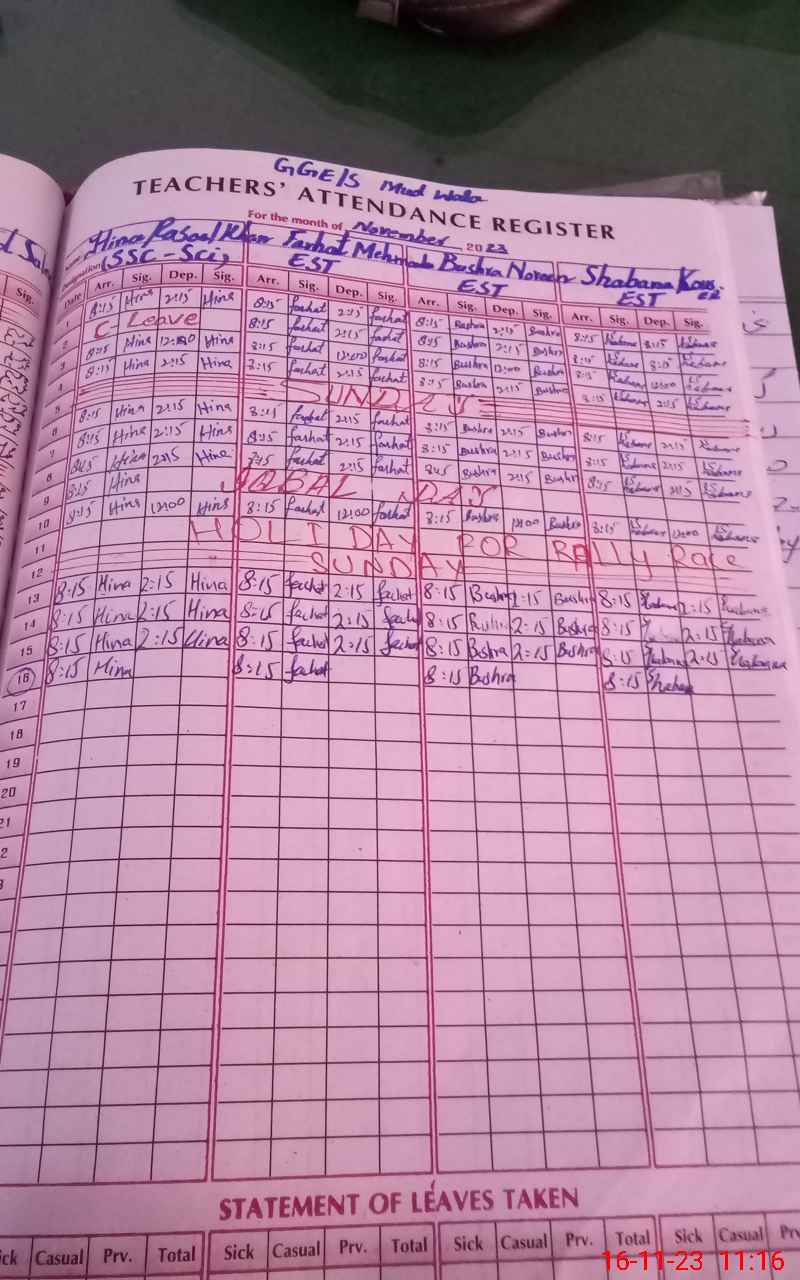 GGE/S Mud Wala
TEACHERS' ATTENDANCE REGISTER
For the month of November 2023
Name Hina Rasool Khan Farhat Mehmood Bushra Noreen Shabana Kous
Designation (SSC-Sci) EST EST EST
Date Arr. Sig. Dep. Sig. Arr. Sig. Dep. Sig. Arr. Sig. Dep. Sig. Arr. Sig. Dep. Sig.
1 8:15 Hina 2:15 Hina 8:15 farhat 2:15 farhat 8:15 Bushra 2:15 Bushra 8:15 8:15
2 C-Leave 8:15 farhat 2:15 farhat 8:15 Bushra 2:15 Bushra 8:15 8:15
3 8:15 Hina 12:00 Hina 8:15 farhat 12:00 farhat 8:15 Bushra 12:00 Bushra 8:15 12:00
4 8:15 Hina 2:15 Hina 8:15 farhat 2:15 farhat 8:15 Bushra 2:15 Bushra 8:15 2:15
5 SUNDAY
6 8:15 Hina 2:15 Hina 8:15 farhat 2:15 farhat 8:15 Bushra 2:15 Bushra 8:15 2:15
7 8:15 Hina 2:15 Hina 8:15 farhat 2:15 farhat 8:15 Bushra 2:15 Bushra 8:15 2:15
8 8:15 Hina 2:15 Hina 8:15 farhat 2:15 farhat 8:15 Bushra 2:15 Bushra 8:15 2:15
9 8:15 Hina IQBAL DAY
10 8:15 Hina 12:00 Hina 8:15 farhat 12:00 farhat 8:15 Bushra 12:00 Bushra 8:15 12:00
11 HOLI DAY FOR RALLY Race
12 SUNDAY
13 8:15 Hina 2:15 Hina 8:15 farhat 2:15 farhat 8:15 Bushra 2:15 Bushra 8:15 2:15 Shabana
14 8:15 Hina 2:15 Hina 8:15 farhat 2:15 farhat 8:15 2:15 Bushra 8:15 2:15 Shabana
15 8:15 Hina 2:15 Hina 8:15 farhat 2:15 farhat 8:15 Bushra 2:15 Bushra 8:15 Shabana 2:15 Shabana
16 8:15 Hina 8:15 farhat 8:15 Bushra 8:15 Shabana
17
18
19
20
21
2
STATEMENT OF LEAVES TAKEN
ick Casual Prv. Total Sick Casual Prv. Total Sick Casual Prv. Total Sick Casual Prv
16-11-23 11:16